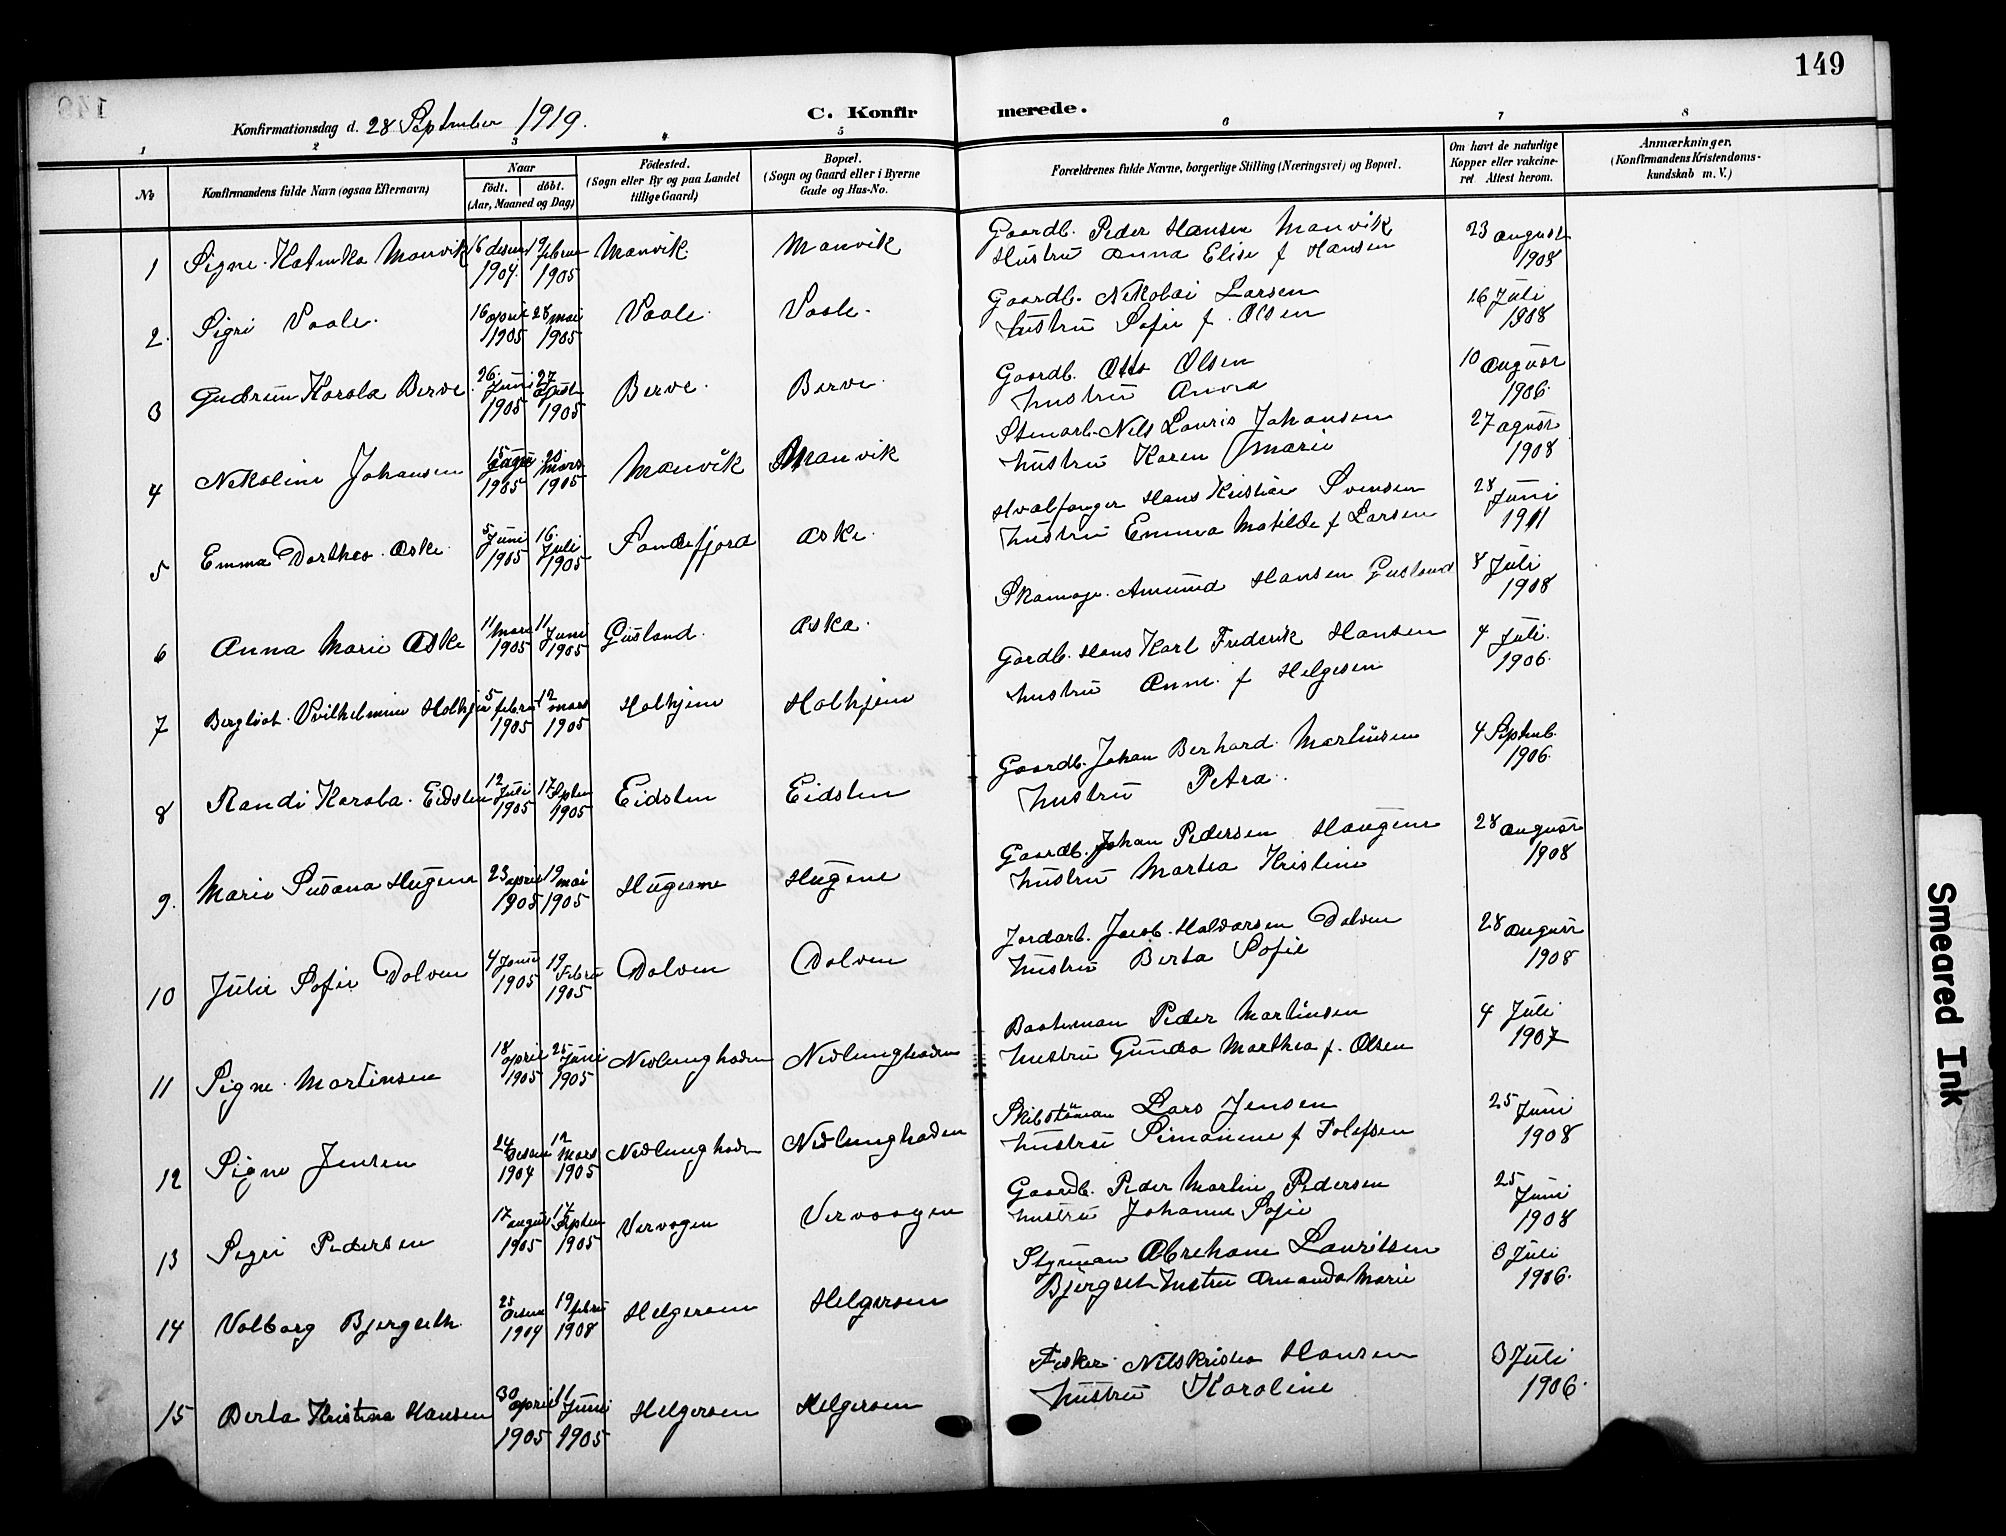 149
Konfirmationsdag d. 28 September 1919.
C. Konfirmerede.
1 2 3 4 5 6 7 8
No
Konfirmandens fulde Navn (ogsaa Efternavn)
Naar
födt. döbt.
(Aar, Maaned og Dag)
Födested.
(Sogn eller By og paa Landet
tillige Gaard)
Bopæl.
(Sogn og Gaard eller i Byerne
Gade og Hus-No.
Forældrenes fulde Navne, borgerlige Stilling (Næringsvei) og Bopæl.
Om havt de naturlige
Kopper eller vakcine-
ret Attest herom.
Anmærkninger.
(Konfirmandens Kristendoms-
kundskab m. V.)
1 Signe Katinka Manvik 16 desem 1904 19 februa 1905 Manvik Manvik
Gaardb. Peder Hansen Manvik 23 august
Hustru Anna Elise f Hansen 1908
2. Sigri Vaale. 16 april 1905 28 mai 1905 Vaale. Vaale.
Gaardb. Nikolai Larsen 16 Juli
hustru Sofie f. Olsen 1908
3 Gudrun Karola Berve. 26. Juni 1905 27 1905 Berve. Berve.
Gaardb. Otto Olsen 10 August
hustru Anna 1906
4 Nikoline Johansen 15 1905 20 Mars 1905 Manvik Manvik
Stenarb. Nils Lauris Johansen 27 agust
hustru Karen Marie 1908
5 Emma Dorthea Aske. 5 Juni 1905 16. Juli 1905 Sandefjord Aske.
Hvalfanger Hans Kristian Svensen 28 Juni
hustru Emma Matilde f Larsen 1911
6 Anna Marie Aske 11 Mars 1905 11 Juni 1905 Gusland. Aska.
Skomag. Amund Hansen Gusland 8 Juli
1908
7 Bergliot Vilhelmine Holhjem 5 febru 1905 12 mars 1905 Holhjem Holhjem
Gardb. Hans Karl Frederik Hansen 4 Juli.
hustru Anne. f Helgesen 1906.
8 Randi Karola. Eidsten 12 Juli 1905 17 Septem 1905 Eidsten Eidsten
Gaardb. Johan Berhard Martinsen 4 Septemb.
hustru Petra. 1906
9. Marie Susana Hugena 23 april 1905 19 mai 1905 Hugesne Hugene
Gaardb. Johan Pedersen Haugene 28 August
hustru Martea Kristine 1908
10 Julie Sofie Dolven 4 Janu 1905 19 Febru 1905 Dolven Dolven
Jordarb. Jacob Haldorsen Dolven 28 August
hustru Berta Sofie 1908
11 Signe Martinsen 18 april 1905 25 Juni 1905 Nevlunghavn Nevlunghaven
Baatsman Peder Martinsen 4 Juli
hustru Gunda Marthea f. Olsen 1907
12 Signe Jensen 24 Desem 1904 12 Mars 1905 Nevlunghavn Nevlunghaden
Skibstöman Lars Jensen 25 Juni
hustru Simonine f Tolefsen 1908
13 Sigri Pedersen 17 august 1905 17 Septem 1905 Vervagen Vervaagen
Gaardb. Peder Martin Pedersen 25 Juni
hustru Johanne Sofie 1908
14 Valborg Bjergseth 25 desem 1904 19 febru 1908 Helgeroen Helgeroen
Styrman Abreham Lauritsen 3 Juli
Bjergseth hustru Amanda Marie 1906.
15 Berta Kristina Hansen 30 april 1905 11 Juni 1905 Helgeroen Helgeroen
Fisker Nils Kristia Hansen 3 Juli
hustru Karoline 1906.
Smeared Ink